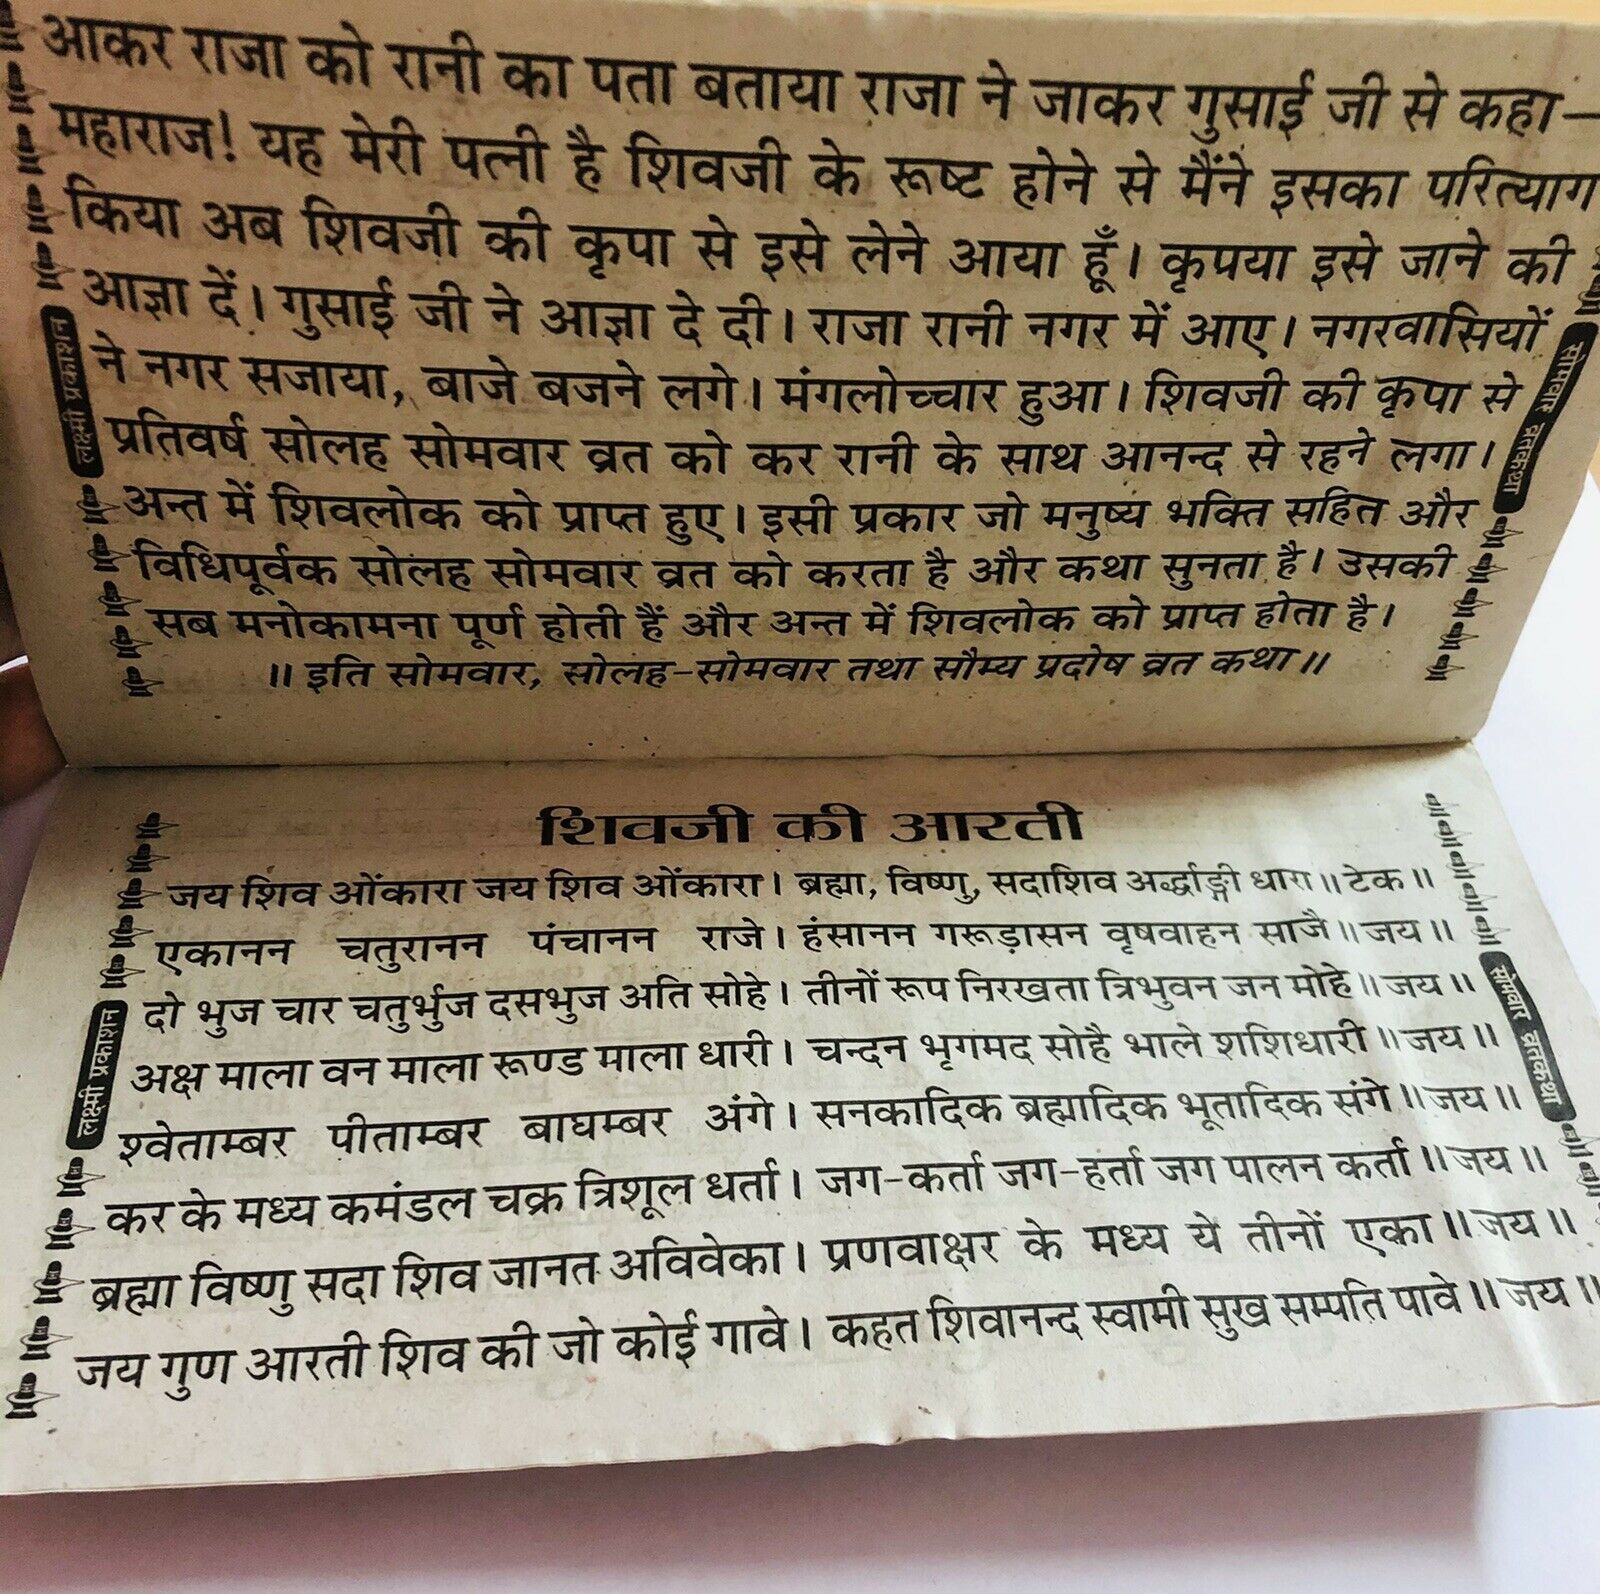 आकर राजा को रानी का पता बताया राजा ने जाकर गुसाई जी से कहा—
महाराज! यह मेरी पत्नी है शिवजी के रूष्ट होने से मैंने इसका परित्याग
किया अब शिवजी की कृपा से इसे लेने आया हूँ। कृपया इसे जाने की
आज्ञा दें। गुसाई जी ने आज्ञा दे दी। राजा रानी नगर में आए। नगरवासियों
ने नगर सजाया, बाजे बजने लगे। मंगलोच्चार हुआ। शिवजी की कृपा से
प्रतिवर्ष सोलह सोमवार व्रत को कर रानी के साथ आनन्द से रहने लगा।
अन्त में शिवलोक को प्राप्त हुए। इसी प्रकार जो मनुष्य भक्ति सहित और
विधिपूर्वक सोलह सोमवार व्रत को करता है और कथा सुनता है। उसकी
सब मनोकामना पूर्ण होती हैं और अन्त में शिवलोक को प्राप्त होता है।
॥ इति सोमवार, सोलह-सोमवार तथा सौम्य प्रदोष व्रत कथा॥
लक्ष्मी प्रकाशन
सोमवार व्रतकथा
शिवजी की आरती
जय शिव ओंकारा जय शिव ओंकारा। ब्रह्मा, विष्णु, सदाशिव अर्द्धाङ्गी धारा॥टेक॥
एकानन चतुरानन पंचानन राजे। हंसानन गरूड़ासन वृषवाहन साजै॥जय॥
दो भुज चार चतुर्भुज दसभुज अति सोहे। तीनों रूप निरखता त्रिभुवन जन मोहे॥जय॥
अक्ष माला वन माला रूण्ड माला धारी। चन्दन भृगमद सोहै भाले शशिधारी॥जय॥
श्वेताम्बर पीताम्बर बाघम्बर अंगे। सनकादिक ब्रह्मादिक भूतादिक संगे॥जय॥
कर के मध्य कमंडल चक्र त्रिशूल धर्ता। जग-कर्ता जग-हर्ता जग पालन कर्ता॥जय॥
ब्रह्मा विष्णु सदा शिव जानत अविवेका। प्रणवाक्षर के मध्य ये तीनों एका॥जय॥
जय गुण आरती शिव की जो कोई गावे। कहत शिवानन्द स्वामी सुख सम्पति पावे॥जय॥
लक्ष्मी प्रकाशन
सोमवार व्रतकथा